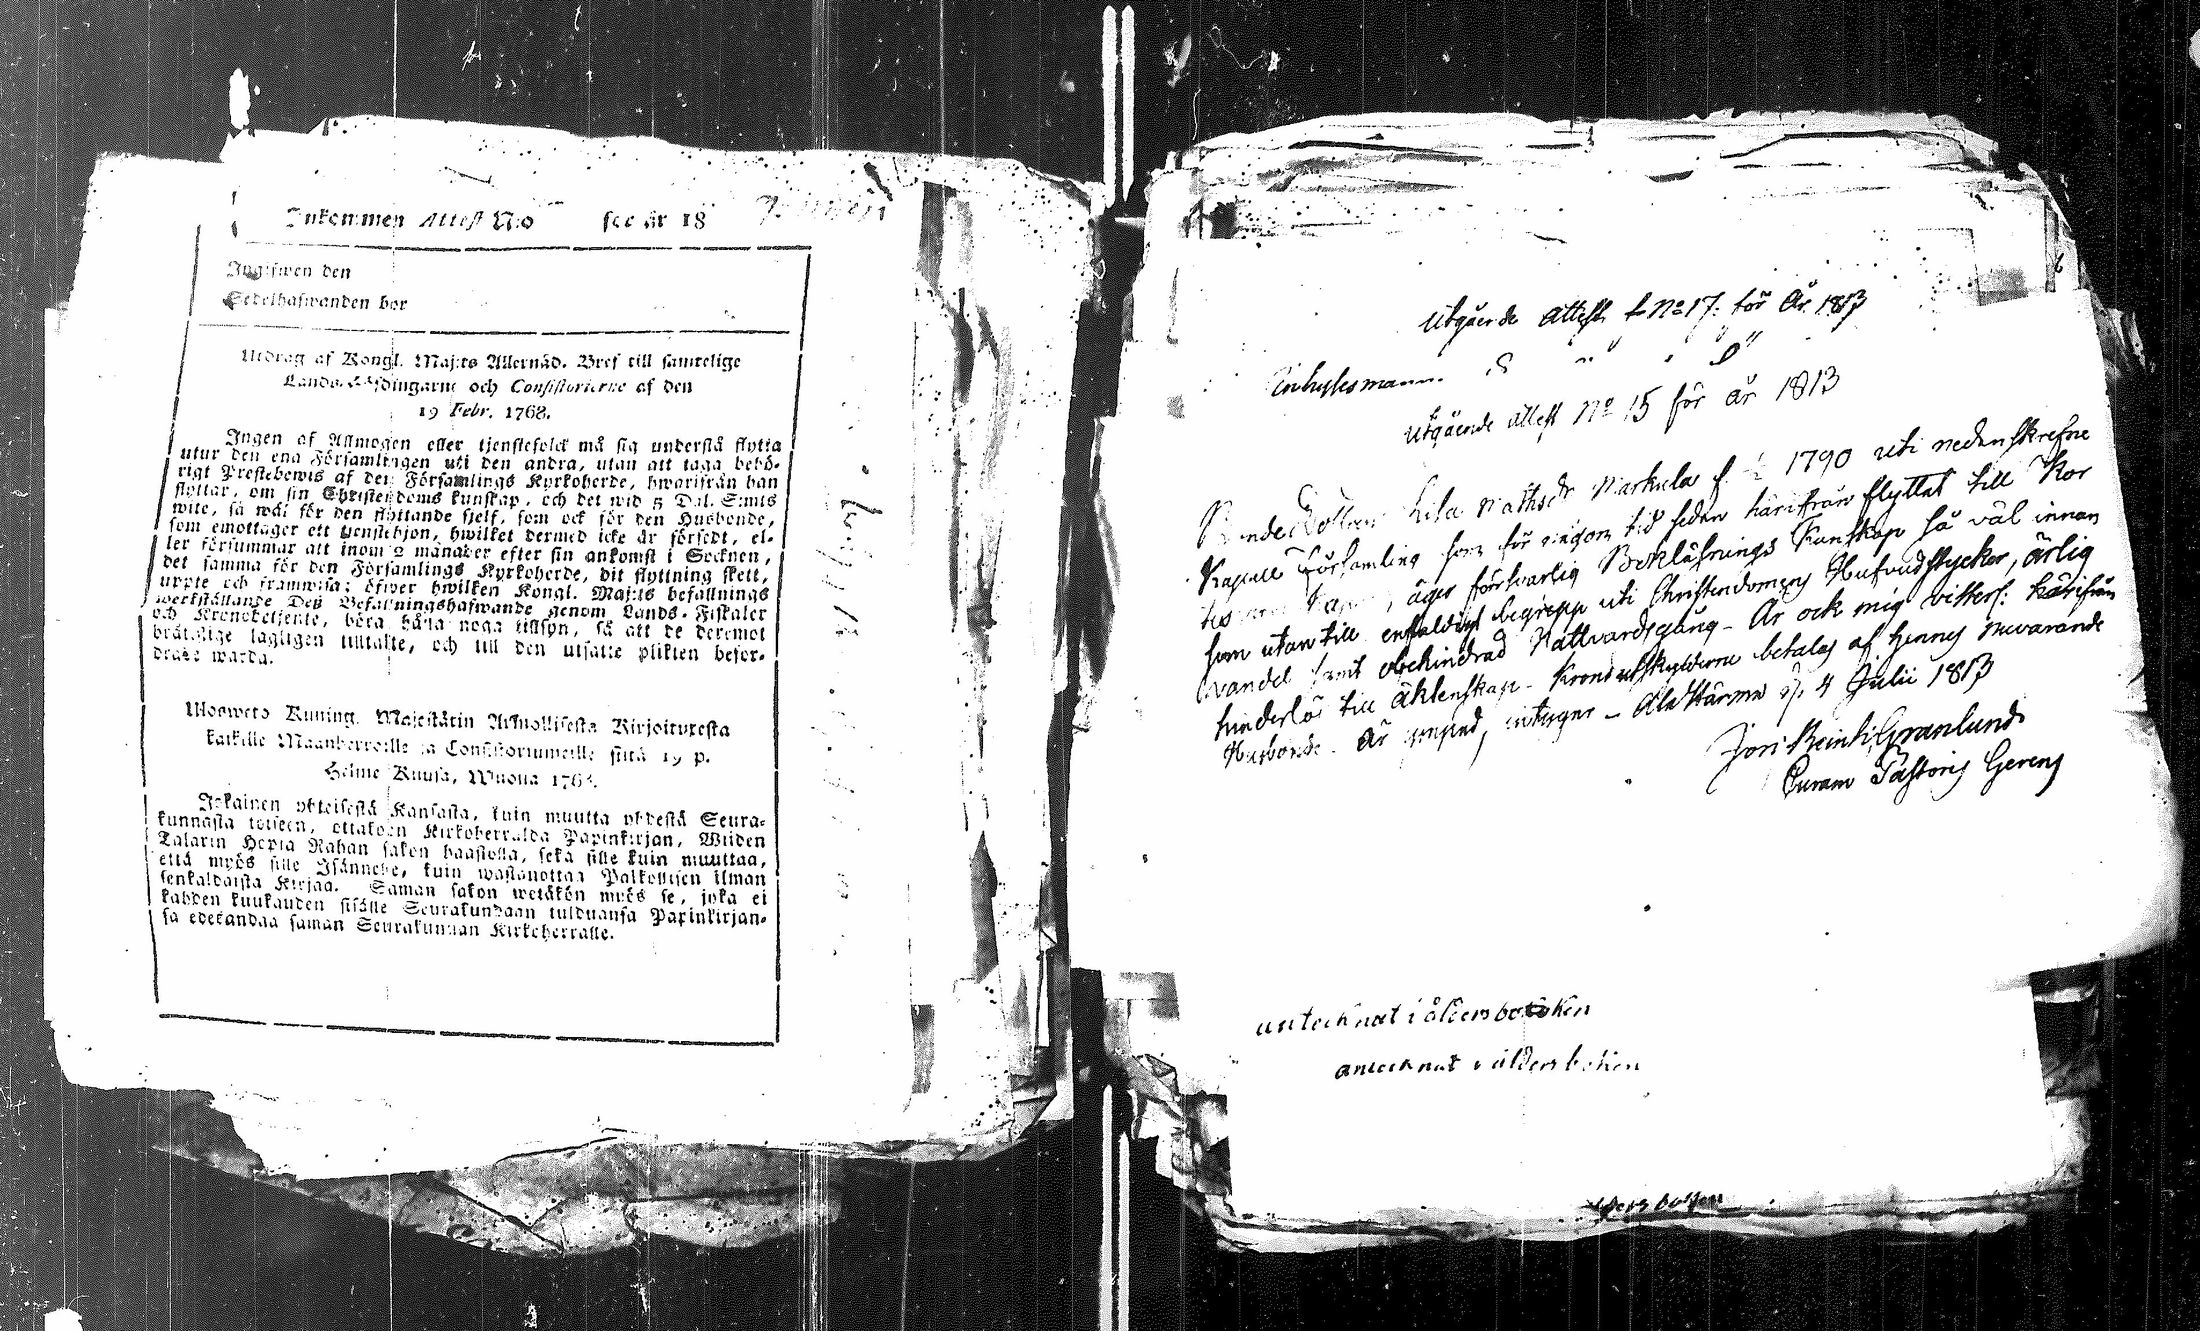 Inkommen Attest N:o see år 18
Ingifwen den
Sedelhafwanden bor
Utdrag af Kongl. Maj:ts Allernåd. Bref till samtelige
Lands-Höfdingarne och Consistorierne af den
19 Febr. 1768.
Ingen af Allmogen eller tjenstefolck må sig understå flytta
utur den ena Församlingen uti den andra, utan att taga behö-
rigt Prestebewis af den Församlings Kyrkoherde, hwarifrån han
flyttar, om sin Christendoms kunskap, och det wid 5 Dal. S:mts
wite, så wäl för den flyttande sjelf, som ock för den Husbonde,
som emottager ett tjenstehjon, hwilket dermed icke är försedt, el-
ler försummar att inom 2 månader efter sin ankomst i Socknen,
det samma för den Församlings Kyrkoherde, dit flyttning skett,
uppte och framwisa; öfwer hwilken Kongl. Maj:ts befallnings
werkställande Deß Befallningshafwande genom Lands-Fiskaler
och Kronobetjente, böra hålla noga tillsyn, så att de deremot
brätslige lagligen tilltalte, och till den utsatte plikten befor-
drade warda.
Ulosweto Kuning. Majestätin Armollisesta Kirjoituxesta
kaikille Maanherroille ja Consistoriumeille siitä 19 p.
Helme Kuusa, Wuona 1768.
Jokainen yhteisestä Kansasta, kuin muutta yhdestä Seura-
kunnasta toiseen, ottakoon Kirkoherralda Papinkirjan, Wiiden
Talarin Hopia Rahan sakon haastolla, sekä sille kuin muuttaa,
että myös sille Isännelle, kuin wastanottaa Palkollisen ilman
senkaldaista Kirjaa. Saman sakon wetäkön myös se, joka ei
kahden kuukauden sisälle Seurakundaan tulduansa Papinkirjan-
sa edesandaa saman Seurakunnan Kirkoherralle.
Utgående attest N:o 17: för År 1813
Inhysesmann
Utgående attest N:o 15 för år 1813
Lisa Mathsdr Markula f. 1790 uti nedanskrefne
Kapell Församling som för någon tid sedan härifrån flyttat till Kor
äger försvarlig Boklåsnings Kunskap så väl innan
som utan till enfaldigt begrepp uti Christendomens Hufvudstycker, ärlig
vandel samt obehindrad Nattvardsgång - Är ock mig vitterl: härifrån
hinderlös till äktenskap - Kronoutskylderne betalas af hennes nuvarande
Husbonde - Är integner - Alahärmä 4 Julii 1813
Granlund
Curam Pastoris Gerens
antecknat i åldersboken
antecknat i åldersboken